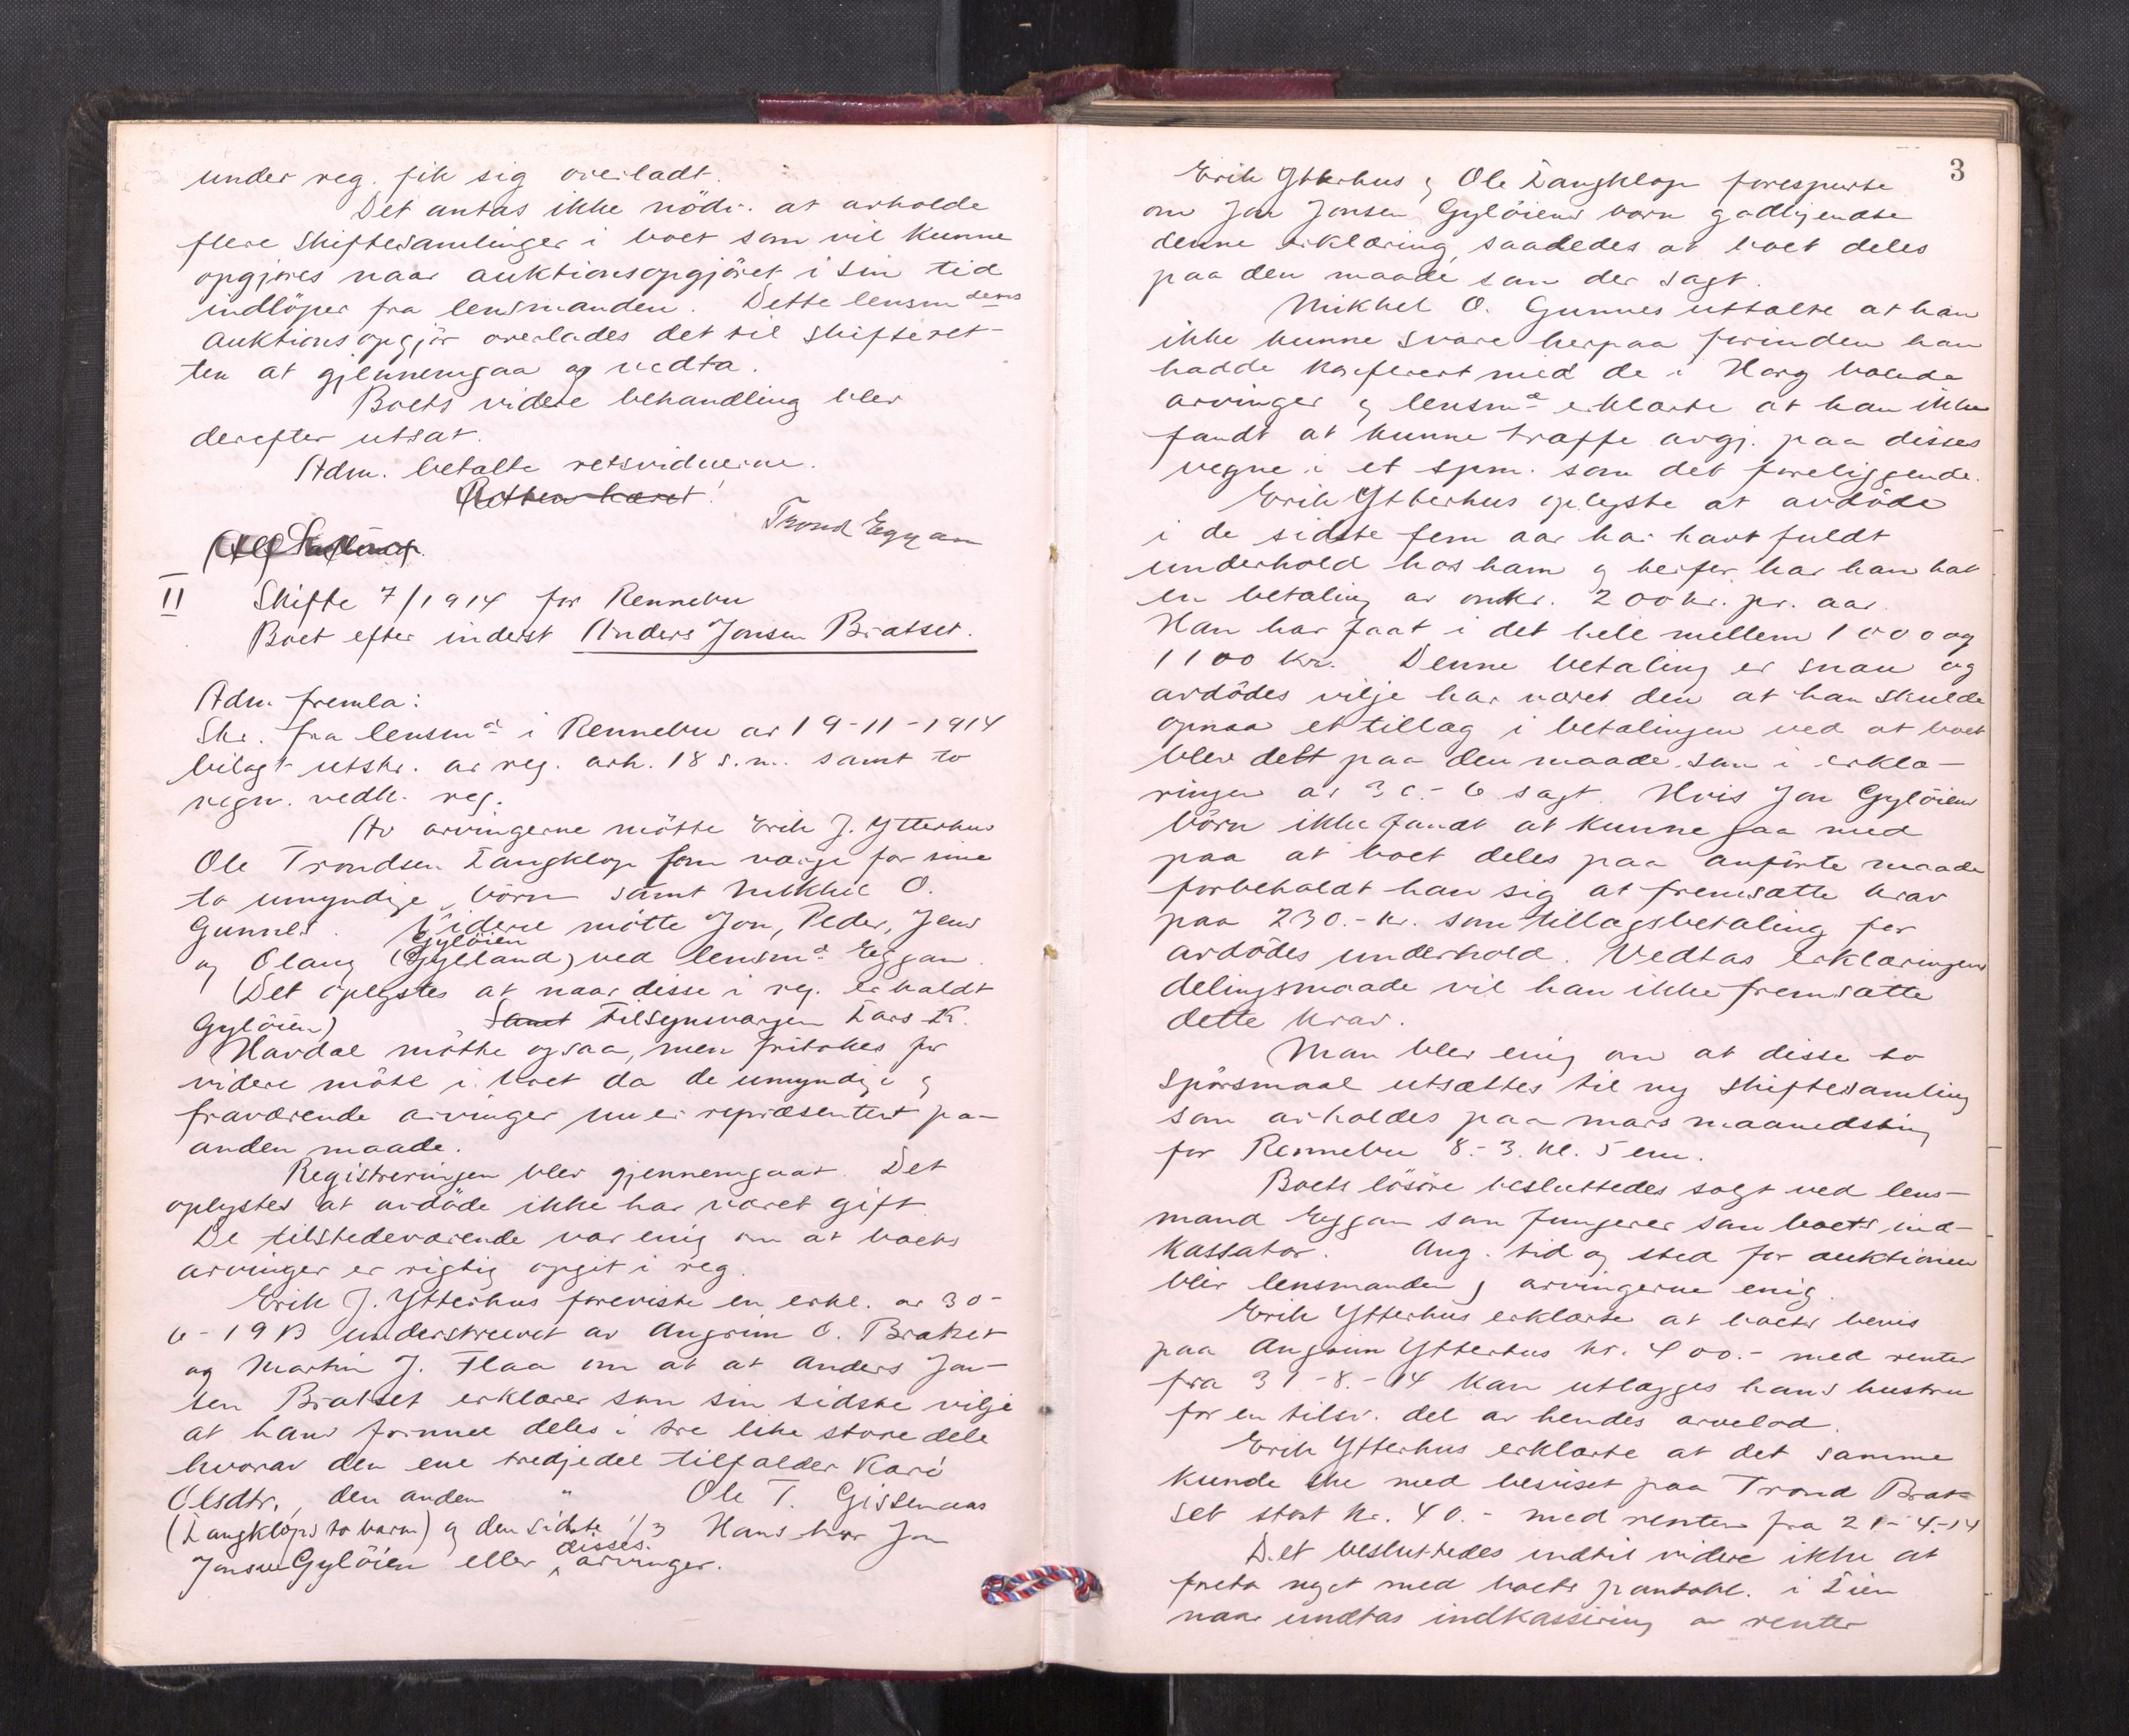 under reg. fik sig overladt.
Det antas ikke nödv. at avholde
flere skiftesamlinger i boet som vil kunne
opgjöres naar auktionsopgjöret i sin tid
indlöper fra lensmanden. Dette lensmdens
auktionsopgjör overlades det til skifteret-
ten at gjennemgaa og vedta.
Boets videre behandling blev
derefter utsat.
Adm. betalte retsvidnerne.
Retten hævet!
Trond Eggan
II Skifte 7/1914 for Rennebu
Boet efter inderst Anders Jonsen Bratset.
Adm. fremla:
Skr. fra lensmd i Rennebu av 19-11-1914
bilagt utskr. av reg. avh. 18 s.m. samt to
regn. vedk. reg.
Av arvingerne mötte Erik J. Ytterhus
Ole Trondsen Langklop som værge for sine
to umyndige börn samt Mikkel O.
Gunnes. Videre mötte Jon, Peder, Jens
Gylöien
og Olaug (Gylland) ved lensmd Eggan.
(Det oplystes at naar disse i reg. er kaldt
Gylöien) Samt Tilsynsværgen Lars K.
Havdal mötte ogsaa, men fritokes for
videre möte i boet da de umyndige og
fraværende arvinger nu er repræsentert paa
anden maade.
Registreringen blev gjennemgaat. Det
oplystes at avdöde ikke har været gift.
De tilstedeværende var enig om at boets
arvinger er rigtig opgit i reg.
Erik J. Ytterhus foreviste en erkl. av 30-
6-1913 underskrevet av Angrim O. Bratset
og Martin J. Flaa om at at Anders Jon-
sen Bratset erklærer som sin sidste vilje
at hans formue deles i tre like store dele
hvorav den ene tredjedel tilfalder Kari
Olsdtr., den anden " Ole T. Gisnaas
(Langklops to barn) og den sidste 1/3 Hans bror Jon
disses
Jonsen Gylöien eller arvinger.
3
Erik Ytterhus og Ole Langklop forespurte
om Jon Jonsen Gylöiens barn godkjendte
denne erklæring saaledes at boet deles
paa den maade som der sagt.
Mikkel O. Gunnes uttalte at han
ikke kunne svare herpaa forinden han
hadde konferert med de i Horg boende
arvinger og lensmd erklærte at han ikke
fandt at kunne træffe avgj. paa disses
vegne i et spm. som det foreliggende.
Erik Ytterhus oplyste at avdöde
i de sidste fem aar har havt fuldt
underhold hos ham og herfor har han hat
en betaling av omkr. 200 kr. pr. aar.
Han har faat i det hele mellem 1000 og
1100 kr. Denne betaling er snau og
avdödes vilje har været den at han skulde
opnaa et tillæg i betalingen ved at boet
blev delt paa den maade som i erklæ-
ringen av 30-6 sagt. Hvis Jon Gylöiens
börn ikke fandt at kunne gaa med
paa at boet deles paa anförte maade
forbeholdt han sig at fremsætte krav
paa 230.- kr. som tillægsbetaling for
avdödes underhold. Vedtas erklæringens
delingsmaade vil han ikke fremsætte
dette krav.
Man blev enig om at disse to
spörsmaal utsættes til ny skiftesamling
som avholdes paa mars maanedsting
for Rennebu 8.-3. kl. 5 em.
Boets lösöre besluttedes solgt ved lens-
mand Eggan som fungerer som boets ind-
kassator. Ang. tid og sted for auktionen
blir lensmanden og arvingerne enig.
Erik Ytterhus erklærte at boets bevis
paa Angrim Ytterhus kr. 400.- med renter
fra 31-8.-14 kan utlægges hans hustru
for en tilsv. del av hendes arvelod.
Erik Ytterhus erklærte at det samme
kunde ske med beviset paa Trond Brat-
set stort kr. 40.- med renter fra 21-4.-14
Det besluttedes indtil videre ikke at
foreta noget med boets pantobl. i Lien
naar undtas indkassering av renter